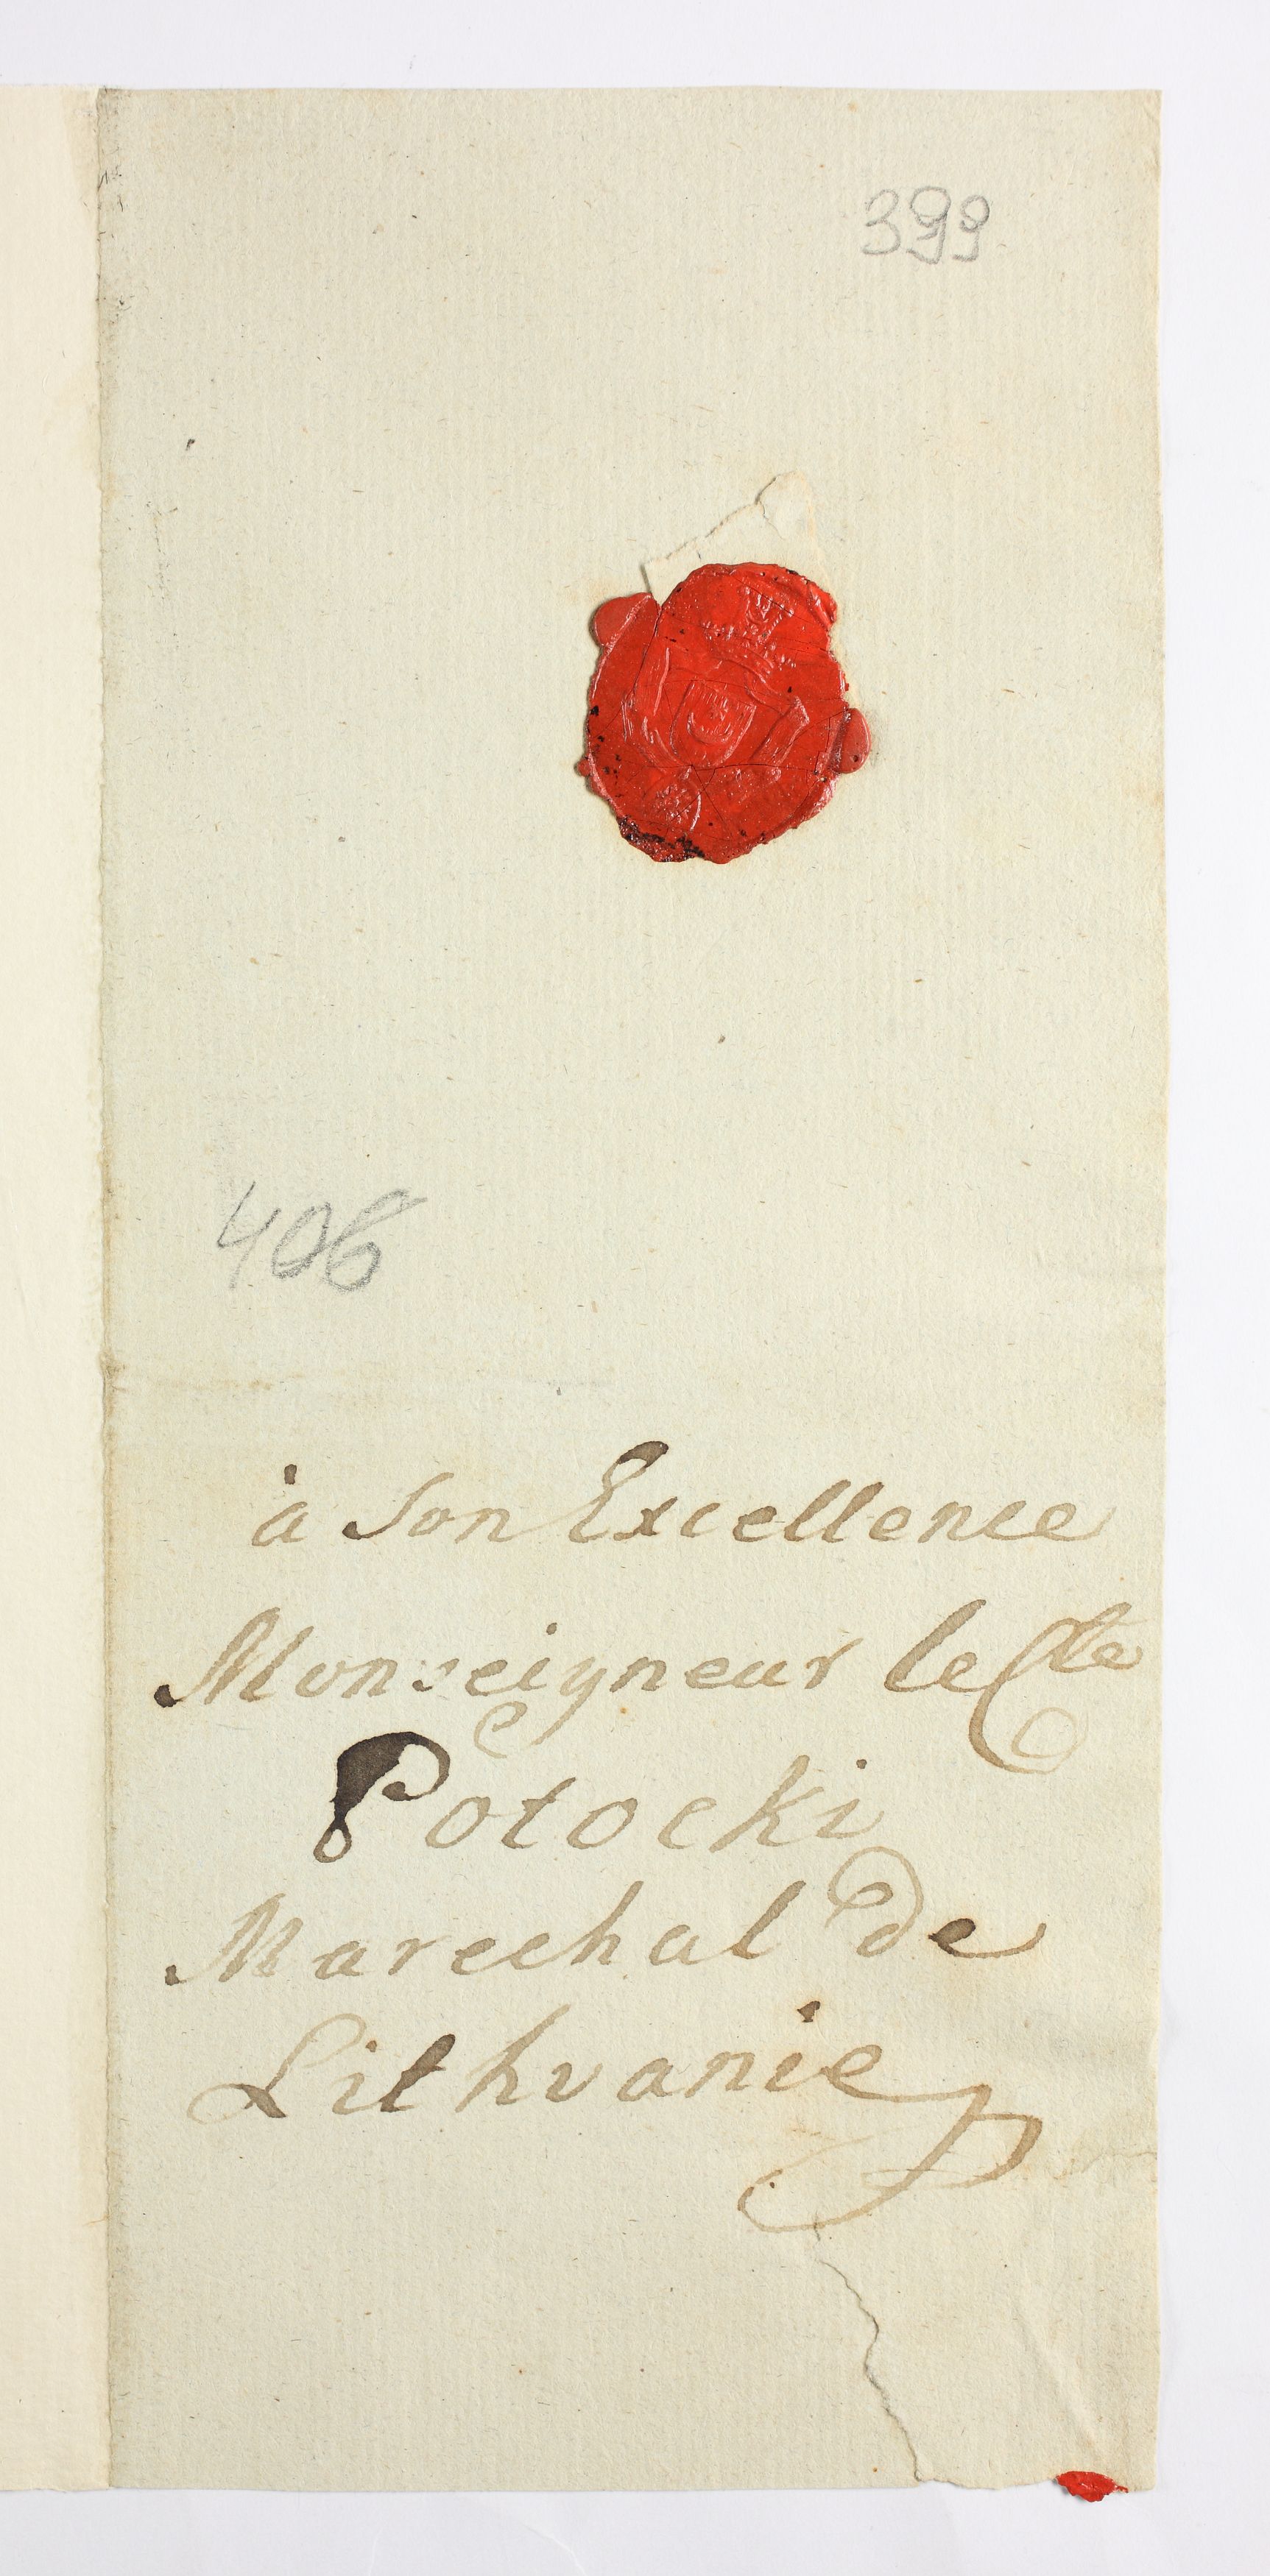 399
406
à Son Excellence
Monseigneur le Cte
Potocki
Marechal de
Lithvanie